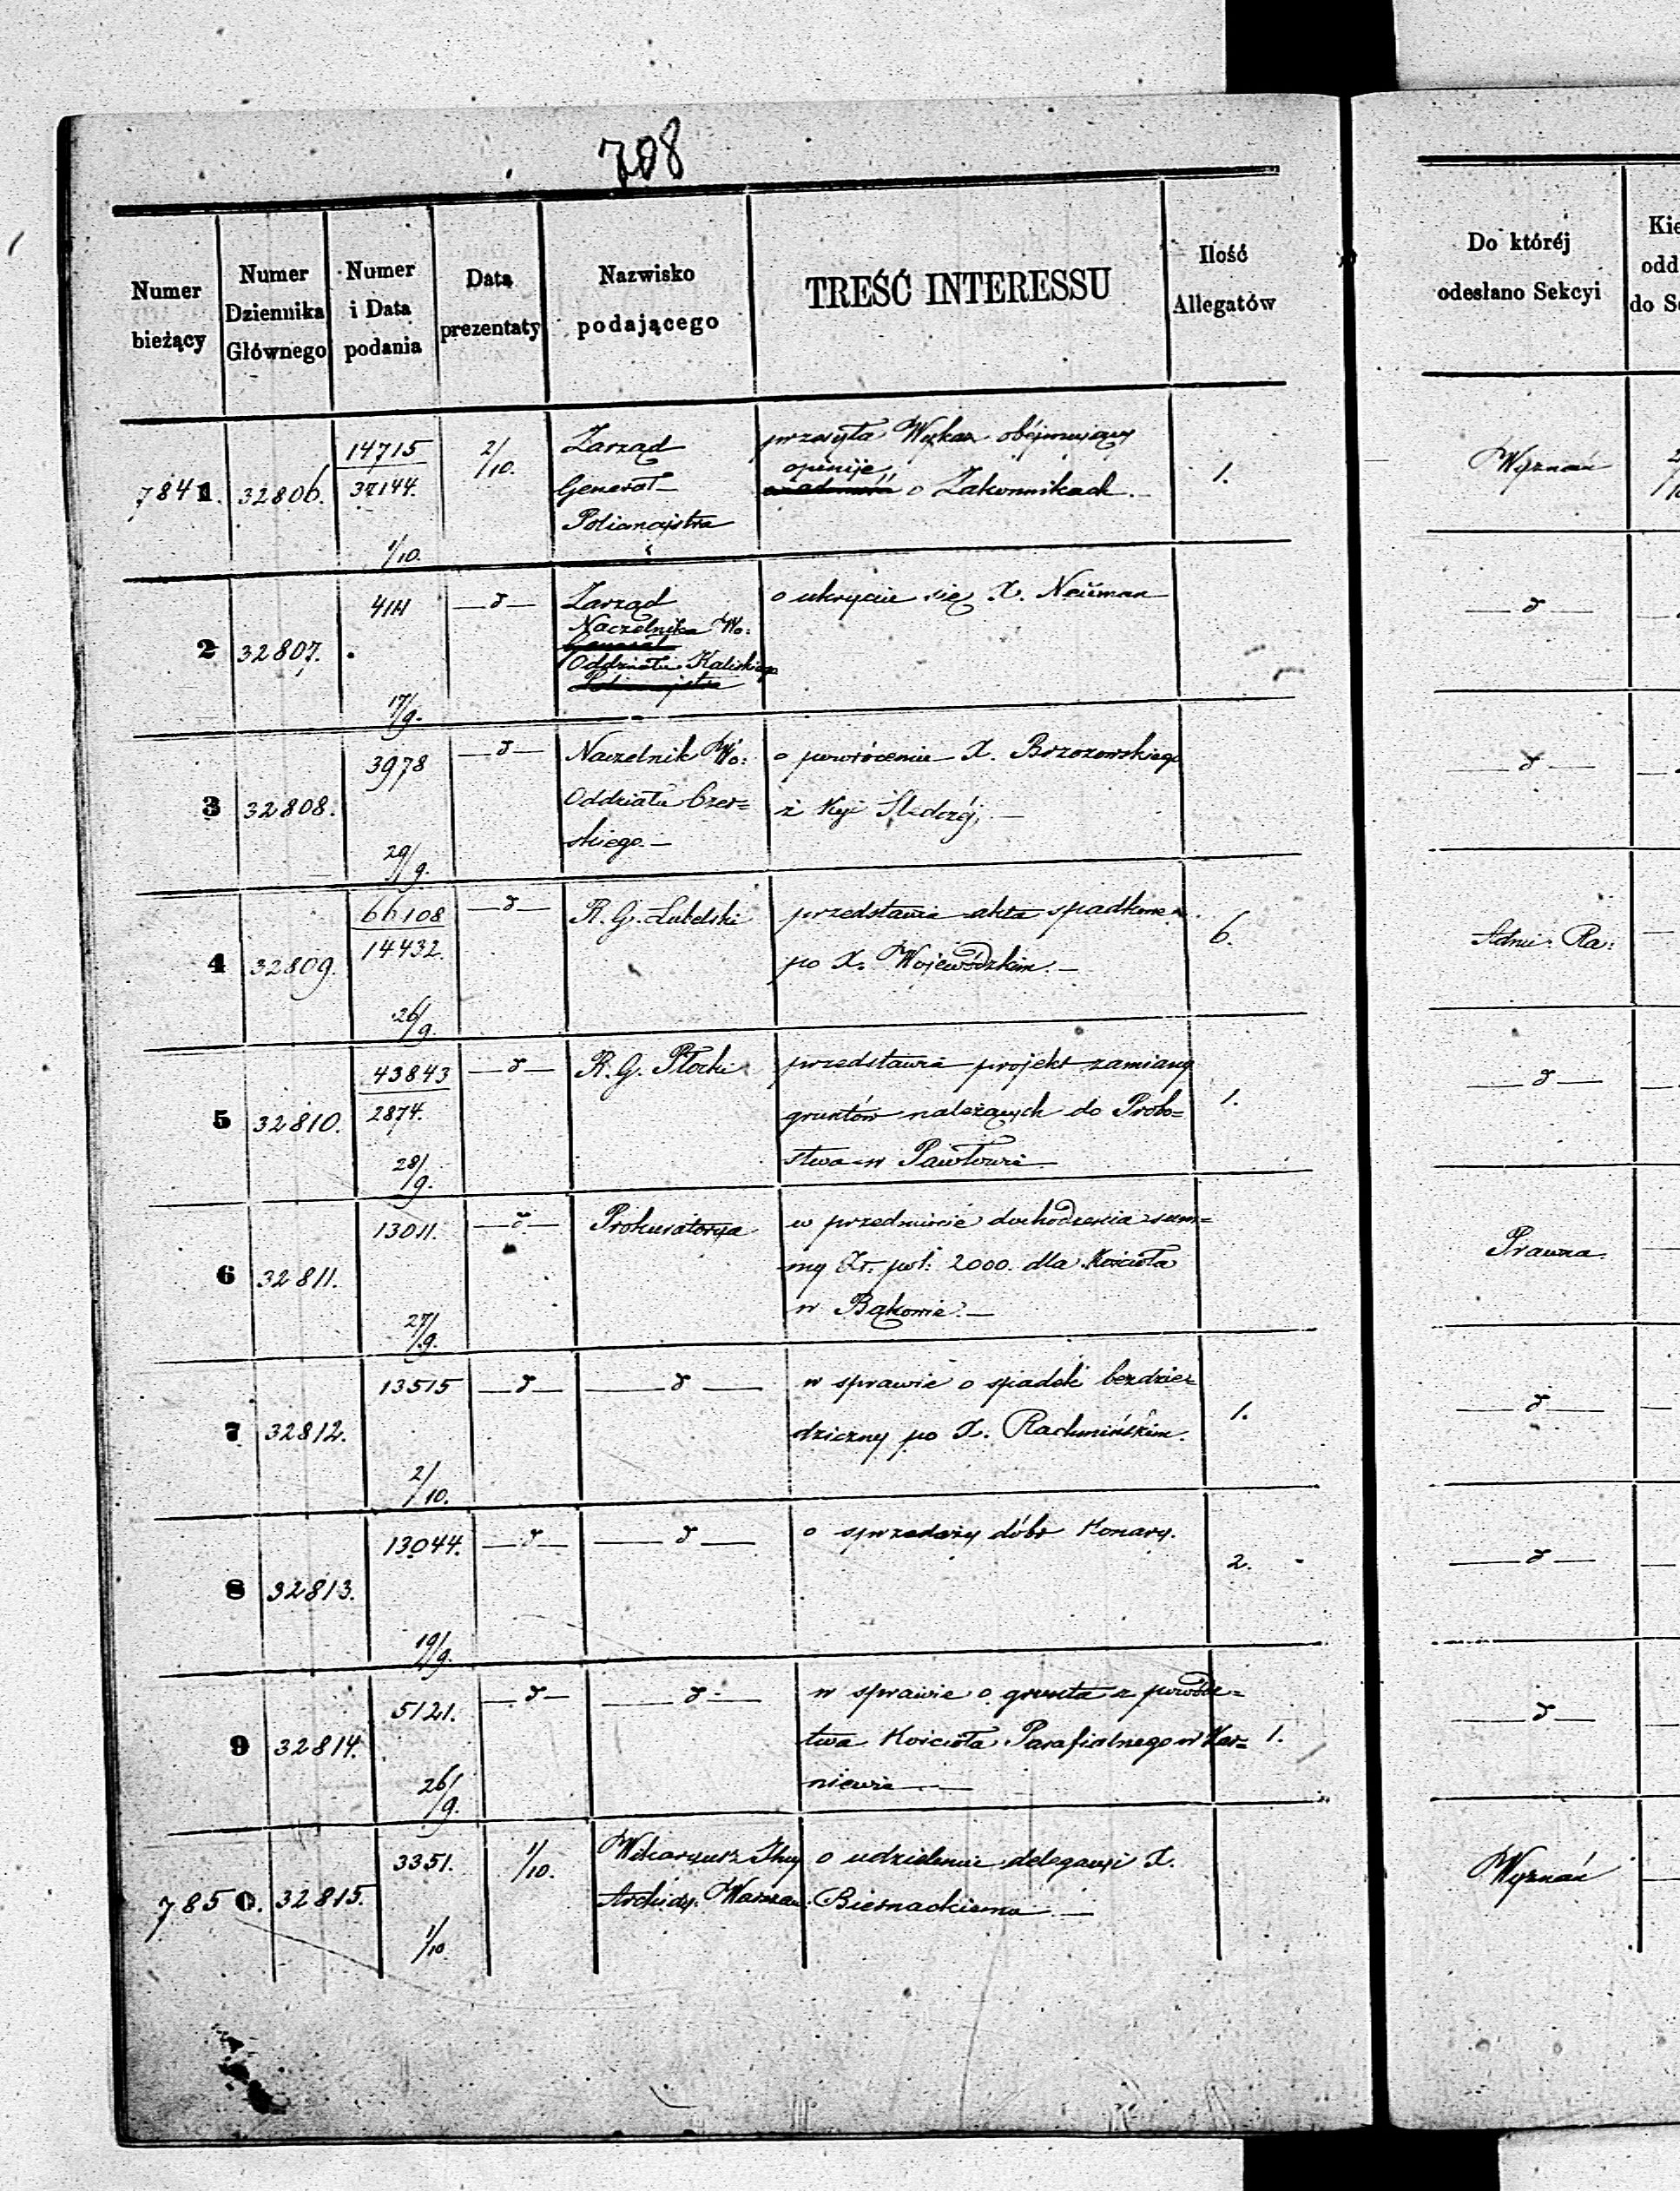 708
Numer bieżący
Numer Dziennika Głównego
Numer i Data podania
Data prezentaty
Nazwisko podającego
TREŚĆ INTERESSU
Ilość Allegatów
Do któréj odesłano Sekcyi
Kie
odd
do S
7841. 32806. 14715 2/10. Zarząd przesyła Wykaz obejmujący 1. Wyznań
37144. Generał opinije
1/10. Policmajstra wiadomość o Zakonnikach.
2 32807. 4114 —d— Zarząd o ukrycie się X. Neüman —d—
Naczelnika Wo:
Generał
Oddziału Kaliskiego
Policmajstra
17/9.
3 32808. 3978 —d— Naczelnik Wo: o powróceniu X. Brzozowskiego —d—
Oddziału Czer= z Kyi Śledczéj.—
skiego.—
29/9.
4 32809. 66108 —d— R. G. Lubelski przedstawia akta spadkowe 6. Admi: Ra:
14432. po X. Wojewódzkim.—
26/9.
5 32810. 43843 —d— R. G. Płocki przedstawia projekt zamiany 1. —d—
2874. gruntów należących do Probo=
28/9. stwa w Pawłowie
6 32811. 13011. —d— Prokuratorya w przedmiocie dochodzenia sum= Prawna
my Zł. pol: 2000. dla Kościoła
27/9. w Bąkowie.—
7 32812. 13515 —d— —d— w sprawie o spadek bezdzie= 1. —d—
dziczny po X. Rachmińskim.
2/10.
8 32813. 13044. —d— —d— o sprzedaży dóbr Konary. 2. —d—
19/9.
9 32814. 5121. —d— —d— w sprawie o grunta z powódz= 1. —d—
twa Kościoła Parafialnego w Kar=
26/9. niewie—
7850. 32815. 3351. 1/10. Wikaryusz o udzielenie delegacyi X. Wyznań
Archidy. Warszaw: Biernackiemu—
1/10